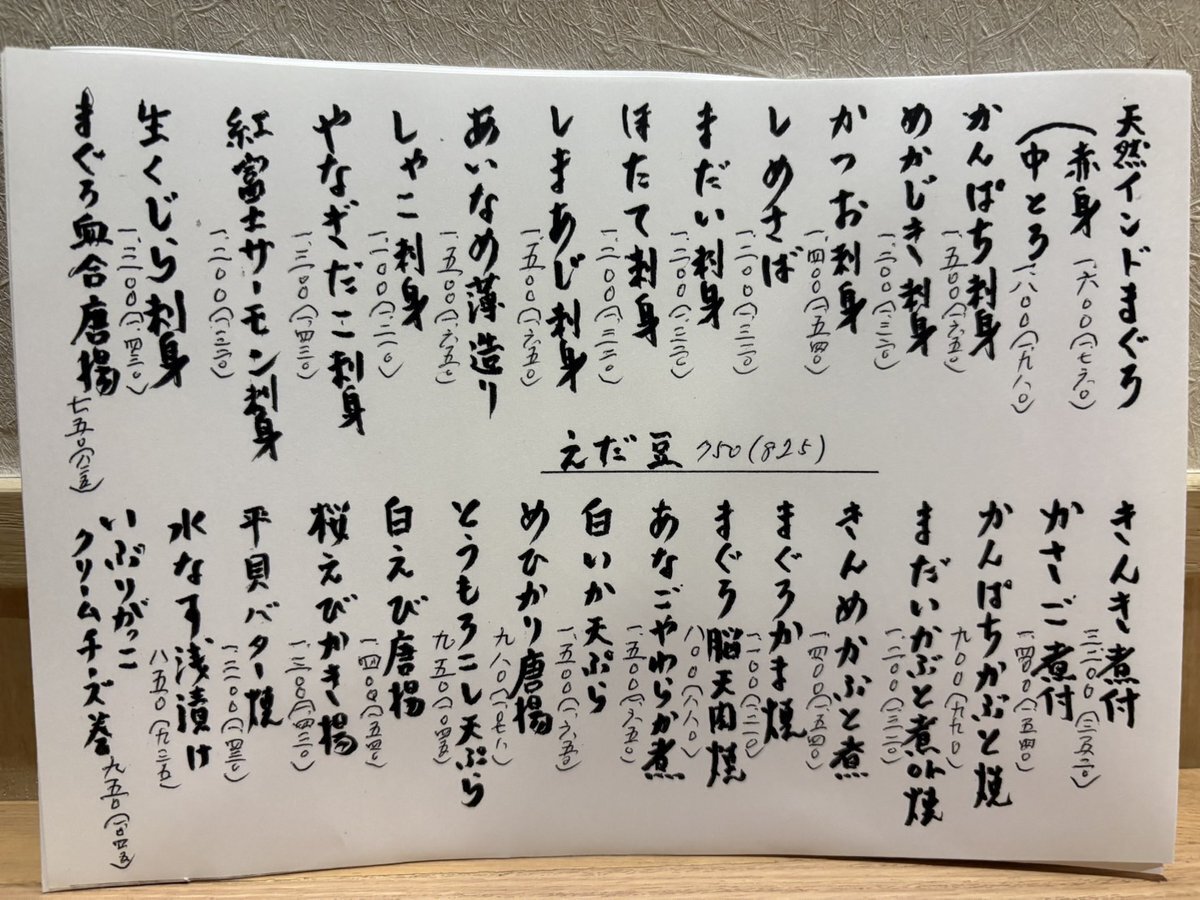 天然インドまぐろ
(赤身 一、六〇〇(一、七六〇)
中とろ 一、八〇〇(一、九八〇)
かんぱち刺身 一、五〇〇(一、六五〇)
めかじき刺身 一、二〇〇(一、三二〇)
かつお刺身 一、四〇〇(一、五四〇)
しめさば 一、二〇〇(一、三二〇)
まだい刺身 一、二〇〇(一、三二〇)
ほたて刺身 一、二〇〇(一、三二〇)
しまあじ刺身 一、五〇〇(一、六五〇)
あいなめ薄造り 一、五〇〇(一、六五〇)
しゃこ刺身 一、一〇〇(一、二一〇)
やなぎだこ刺身 一、三〇〇(一、四三〇)
紅富士サーモン刺身 一、二〇〇(一、三二〇)
生くじら刺身 一、三〇〇(一、四三〇)
まぐろ血合唐揚 七五〇(八二五)
えだ豆 750(825)
きんき煮付 三、二〇〇(三、五二〇)
かさご煮付 一、四〇〇(一、五四〇)
かんぱちかぶと焼 九〇〇(九九〇)
まだいかぶと煮or焼 一、二〇〇(一、三二〇)
きんめかぶと煮 一、四〇〇(一、五四〇)
まぐろかま焼 一、一〇〇(一、二一〇)
まぐろ脳天肉焼 八〇〇(八八〇)
あなごやわらか煮 一、五〇〇(一、六五〇)
白いか天ぷら 一、五〇〇(一、六五〇)
めひかり唐揚 九八〇(一、〇七八)
とうもろこし天ぷら 九五〇(一、〇四五)
白えび唐揚 一、四〇〇(一、五四〇)
桜えびかき揚 一、三〇〇(一、四三〇)
平貝バター焼 一、三〇〇(一、四三〇)
水なす浅漬け 八五〇(九三五)
いぶりがっこ
クリームチーズ巻 九五〇(一、〇四五)